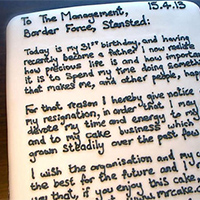 To The Management, 15.4.13
Border Force, Stansted:
Today is my 31st birthday, and having
recently become a father I now realise
how precious life is and how important
it is to spend my time doing something
that makes me, and other people, happy
For that reason I hereby give notice of
my resignation, in order that I may
devote my time and energy to my
and to my cake business which
grown steadily over the past few
I wish the organisation and my
the best for the future and
you that, if you enjoy this cake
mrcake.c